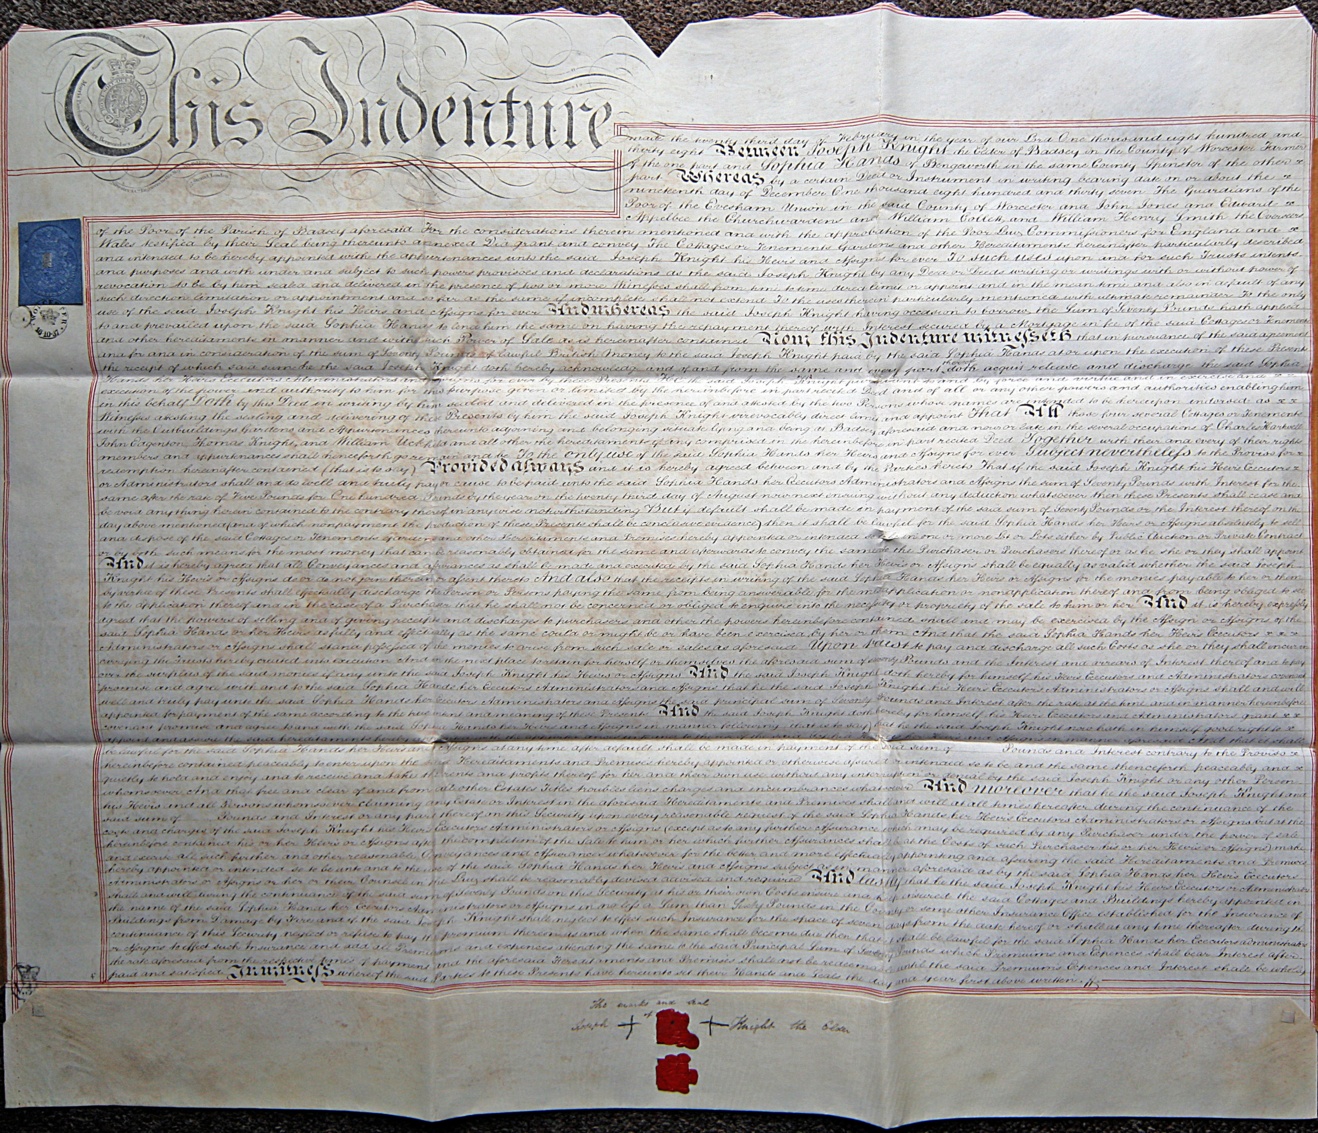 This Indenture
made the twenty third day of February in the year of our Lord One thousand eight hundred and
thirty eight Between Joseph Knight the elder of Badsey in the County of Worcester Farmer
of the one part and Sophia Hands of Bengeworth in the same County Spinster of the other
part Whereas by a certain Deed or Instrument in writing bearing date on or about the
nineteenth day of December One thousand eight hundred and thirty seven The Guardians of the
Poor of the Evesham Union in the said County of Worcester and John Jones and Edward
Appelbee the Churchwardens and William Collett and William Henry Smith the Overseers
of the Poor of the Parish of Badsey aforesaid For the considerations therein mentioned and with the approbation of the Poor Law Commissioners for England and
Wales testified by their Seal being thereunto annexed Did grant and convey The Cottages or Tenements Gardens and other Hereditaments hereinafter particularly described
and intended to be hereby appointed with the appurtenances unto the said Joseph Knight his Heirs and Assigns for ever To Such Uses upon and for such Trusts intents
and purposes and with under and subject to such powers provisoes and declarations as the said Joseph Knight by any Deed or Deeds writing or writings with or without power of
revocation to be by him sealed and delivered in the presence of two or more Witnesses shall from time to time direct limit or appoint and in the mean time and also in default of any
such direction limitation or appointment and so far as the same if incomplete shall not extend To the uses therein particularly mentioned with ultimate remainder To the only
use of the said Joseph Knight his Heirs and Assigns for ever And whereas the said Joseph Knight having occasion to borrow the Sum of Seventy Pounds hath applied
to and prevailed upon the said Sophia Hands to lend him the same on having the repayment thereof with Interest secured by a Mortgage in fee of the said Cottages or Tenements
and other hereditaments in manner and with such Power of Sale as is hereinafter contained Now this Indenture witnesseth that in pursuance of the said agreement
and for and in consideration of the sum of Seventy Pounds of lawful British Money to the said Joseph Knight paid by the said Sophia Hands at or upon the execution of these Presents
the receipt of which said sum he the said Joseph Knight doth hereby acknowledge and of and from the same and every part doth acquit release and discharge the said Sophia
Hands her Heirs Executors Administrators and Assigns for ever by these Presents He the said Joseph Knight pursuant to and by force and virtue and in exercise and
execution of the power and authority to him for this purpose given or limited by the said in part recited Deed and of all other powers and authorities enabling him
in this behalf Doth by this Deed in writing by him sealed and delivered in the presence of and attested by the two Persons whose names are intended to be hereupon indorsed as
Witnesses attesting the sealing and delivering of these Presents by him the said Joseph Knight irrevocably direct limit and appoint That All those four several Cottages or Tenements
with the Outbuildings Gardens and Appurtenances thereunto adjoining and belonging situate lying and being at Badsey aforesaid and now or late in the several occupation of Charles Hartwell
John Edgenton Thomas Knight and William and all other the hereditaments if any comprised in the hereinbefore in part recited Deed Together with their and every of their rights
members and appurtenances shall henceforth go remain and be To the only use of the said Sophia Hands her Heirs and Assigns for ever Subject nevertheless to the Proviso for
redemption hereinafter contained (that is to say) Provided always and it is hereby agreed between and by the Parties hereto That if the said Joseph Knight his Heirs Executors
or Administrators shall and do well and truly pay or cause to be paid unto the said Sophia Hands her Executors Administrators and Assigns the sum of Seventy Pounds with Interest for the
same after the rate of Five Pounds for One hundred Pounds by the year on the twenty third day of August now next ensuing without any deduction whatsoever then these Presents shall cease and
be void any thing herein contained to the contrary thereof in any wise notwithstanding But if default shall be made in payment of the said sum of Seventy Pounds or the Interest thereof on the
day above mentioned (and of which nonpayment the production of these Presents shall be conclusive evidence) then it shall be lawful for the said Sophia Hands her Heirs or Assigns absolutely to sell
and dispose of the said Cottages or Tenements Gardens and other Hereditaments and Premises hereby appointed or intended so to be in one or more Lot or Lots either by Public Auction or Private Contract
or by both such means for the most money that can be reasonably obtained for the same and afterwards to convey the same to the Purchaser or Purchasers thereof or as he she or they shall appoint
And it is hereby agreed that all Conveyances and Assurances as shall be made and executed by the said Sophia Hands her Heirs or Assigns shall be equally as valid whether the said Joseph
Knight his Heirs or Assigns do or do not join therein or assent thereto And also that the receipts in writing of the said Sophia Hands her Heirs or Assigns for the monies payable to her or them
by virtue of these Presents shall effectually discharge the Person or Persons paying the same from being answerable for the misapplication or nonapplication thereof and from being obliged to see
to the application thereof and in the case of a Purchaser that he shall not be concerned or obliged to enquire into the necessity or propriety of the sale to him or her And it is hereby expressly
agreed that the powers of selling and of giving receipts and discharges to purchasers and other the powers hereinbefore contained shall and may be exercised by the Assign or Assigns of the
said Sophia Hands or her Heirs as fully and effectually as the same could or might be or have been exercised by her or them And that the said Sophia Hands her Heirs Executors
Administrators or Assigns shall stand possessed of the monies to arise from such sale or sales as aforesaid Upon Trust to pay and discharge all such Costs as she or they shall incur in
carrying the Trusts hereby created into execution And in the next place to retain for herself or themselves the aforesaid sum of Seventy Pounds and the Interest and arrears of Interest thereof and to pay
over the surplus of the said monies if any unto the said Joseph Knight his Heirs or Assigns And the said Joseph Knight doth hereby for himself his Heirs Executors and Administrators covenant
promise and agree with and to the said Sophia Hands her Executors Administrators and Assigns that he the said Joseph Knight his Heirs Executors Administrators or Assigns shall and will
well and truly pay unto the said Sophia Hands her Executors Administrators and Assigns the said principal sum of Seventy Pounds and Interest after the rate at the time and in manner hereinbefore
appointed for payment of the same according to the true intent and meaning of these Presents And the said Joseph Knight doth hereby for himself his Heirs Executors and Administrators grant
covenant promise and agree to and with the said Sophia Hands her Heirs and Assigns in manner following that is to say that he the said Joseph Knight now hath in himself good right
lawful for the said Sophia Hands her Heirs and Assigns at any time after default shall be made in payment of the said sum of Pounds and Interest contrary to the Proviso
hereinbefore contained peaceably to enter upon the Hereditaments and Premises hereby appointed or otherwise assured or intended so to be and the same thenceforth peaceably and
quietly to hold and enjoy and to receive and take the rents and profits thereof for her and their own use without any interruption or denial by the said Joseph Knight or any other Person
whomsoever And that free and clear of and from all other Estates Titles troubles liens charges and incumbrances whatsoever And moreover that he the said Joseph Knight and
his Heirs and all Persons whomsoever claiming any Estate or Interest in the aforesaid Hereditaments and Premises shall and will at all times hereafter during the continuance of the
said sum of Pounds and Interest or any part thereof on this Security upon every reasonable request of the said Sophia Hands her Heirs Executors Administrators or Assigns but at the
costs and charges of the said Joseph Knight his Heirs Executors Administrators or Assigns (except as to any further Assurance which may be required by any Purchaser under the power of sale
hereinbefore contained his or her Heirs or Assigns after the completion of the Sale to him or her which further assurances shall be at the Costs of such Purchaser his or her Heirs or Assigns) make
and execute all such further and other reasonable Conveyances and Assurances whatsoever for the better and more effectually appointing and assuring the said Hereditaments and Premises
hereby appointed or intended so to be unto and to the use of the said Sophia Hands her Heirs and Assigns subject in manner aforesaid as by the said Sophia Hands her Heirs Executors
Administrators or Assigns or her or their Counsel in the Law shall be reasonably devised advised and required And lastly that he the said Joseph Knight his Heirs Executors or Administrators
shall and will during the continuance of the said sum of Seventy Pounds on this Security at his or their own Costs insure and keep insured the said Cottages and Buildings hereby appointed in
the name of the said Sophia Hands her Executors Administrators or Assigns in no less a Sum than Sixty Pounds in the County or some other Insurance Office established for the Insurance of
Buildings from Damage by Fire and if the said Joseph Knight shall neglect to effect such Insurance for the space of seven days from the date hereof or shall at any time thereafter during the
continuance of this Security neglect or refuse to pay the premium thereon as and when the same shall become due then that it shall be lawful for the said Sophia Hands her Executors Administrators
or Assigns to effect such Insurance and add all Premiums and expences attending the same to the said Principal Sum of Seventy Pounds which Premiums and Expences shall bear Interest after
the rate aforesaid from the respective times of payment and the aforesaid Hereditaments and Premises shall not be redeemed until the said Premiums Expences and Interest shall be wholly
paid and satisfied In witness whereof the said Parties to these Presents have hereunto set their Hands and Seals the day and Year first above written
The mark and seal
of
Joseph Knight the Elder